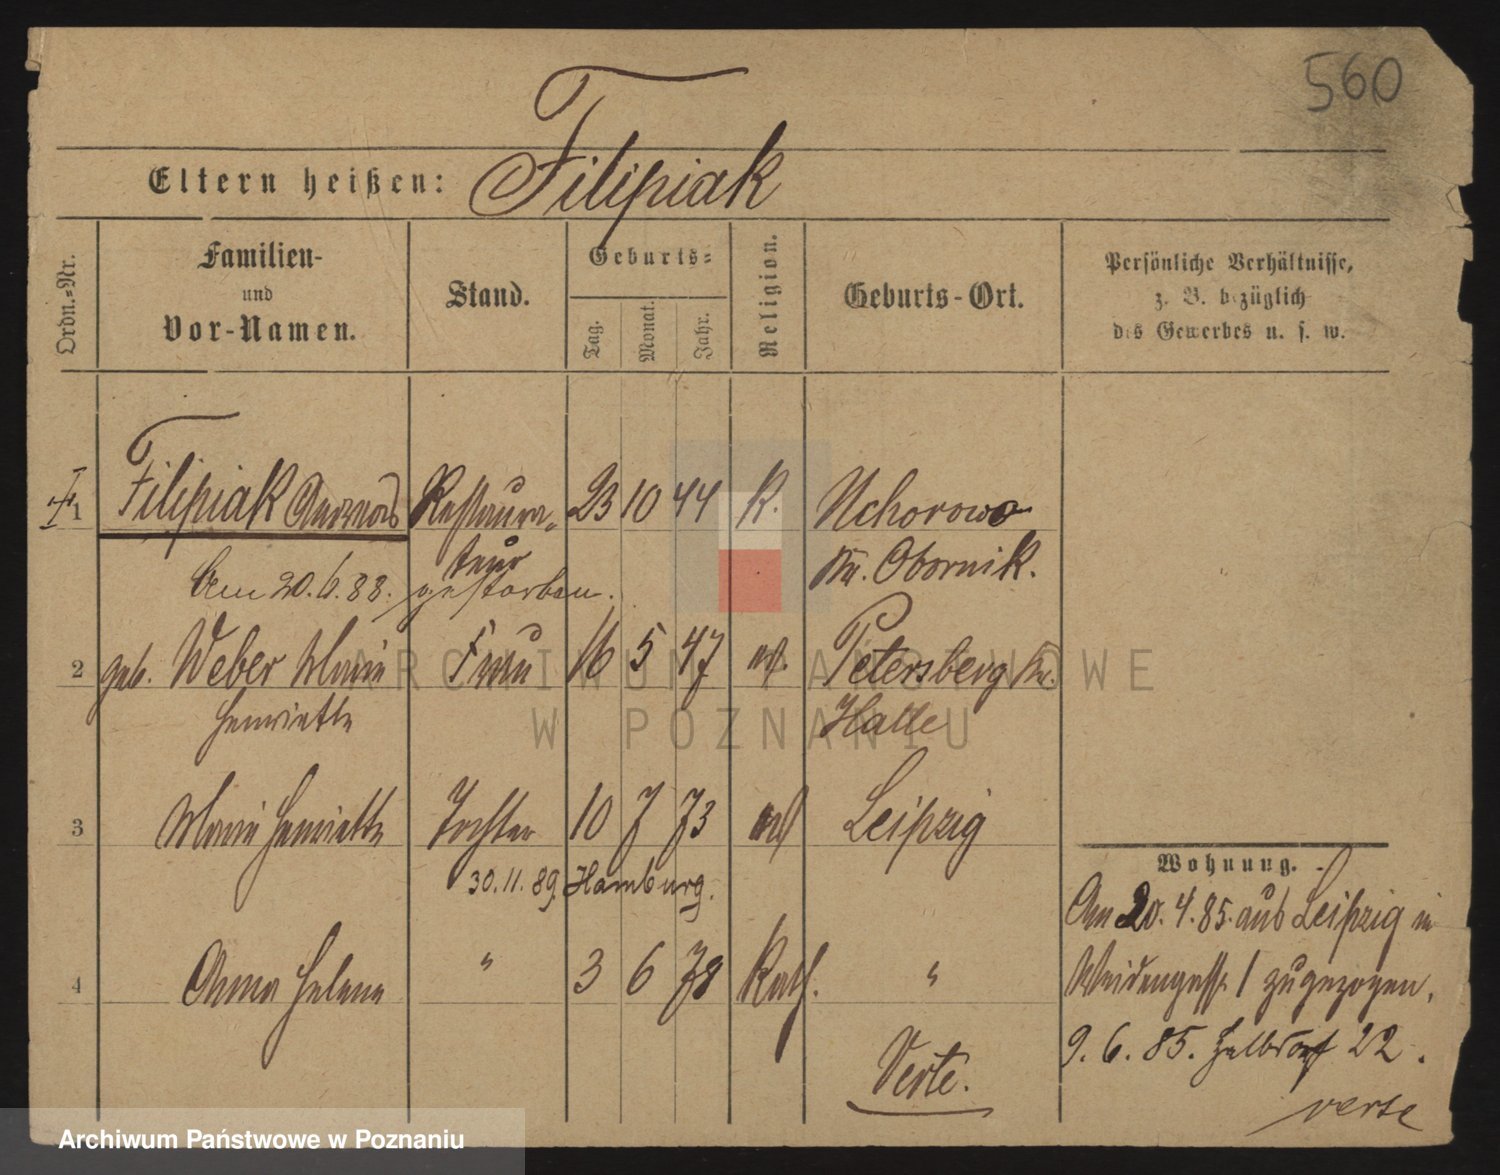 560
Eltern heißen: Filipiak
Ordn.-Nr.
Familien-
und
Vor-Namen.
Stand.
Geburts-
Tag.
Monat.
Jahr.
Religion.
Geburts-Ort.
Persönliche Verhältnisse,
z. B. bezüglich
des Gewerbes u. s. w.
1 Filipiak Andreas Restaura- 23 10 44 k. Uchorowo
teur Kr. Obornik.
Am 20.6.88. gestorben.
2 geb. Weber Marie Frau 16 5 47 ev. Petersberg Kr.
Henriette Halle
3 Marie Henriette Tochter 10 7 73 ev. Leipzig
30.11.89. Hamburg.
4 Anna Helene " 3 6 78 Kath. "
Verte.
Wohnung.
Am 20.4.85. aus Leipzig in
Weidengasse 1 zugezogen.
9.6.85. Halbdorf 22.
verte
ARCHIWUM PAŃSTWOWE
W POZNANIU
Archiwum Państwowe w Poznaniu